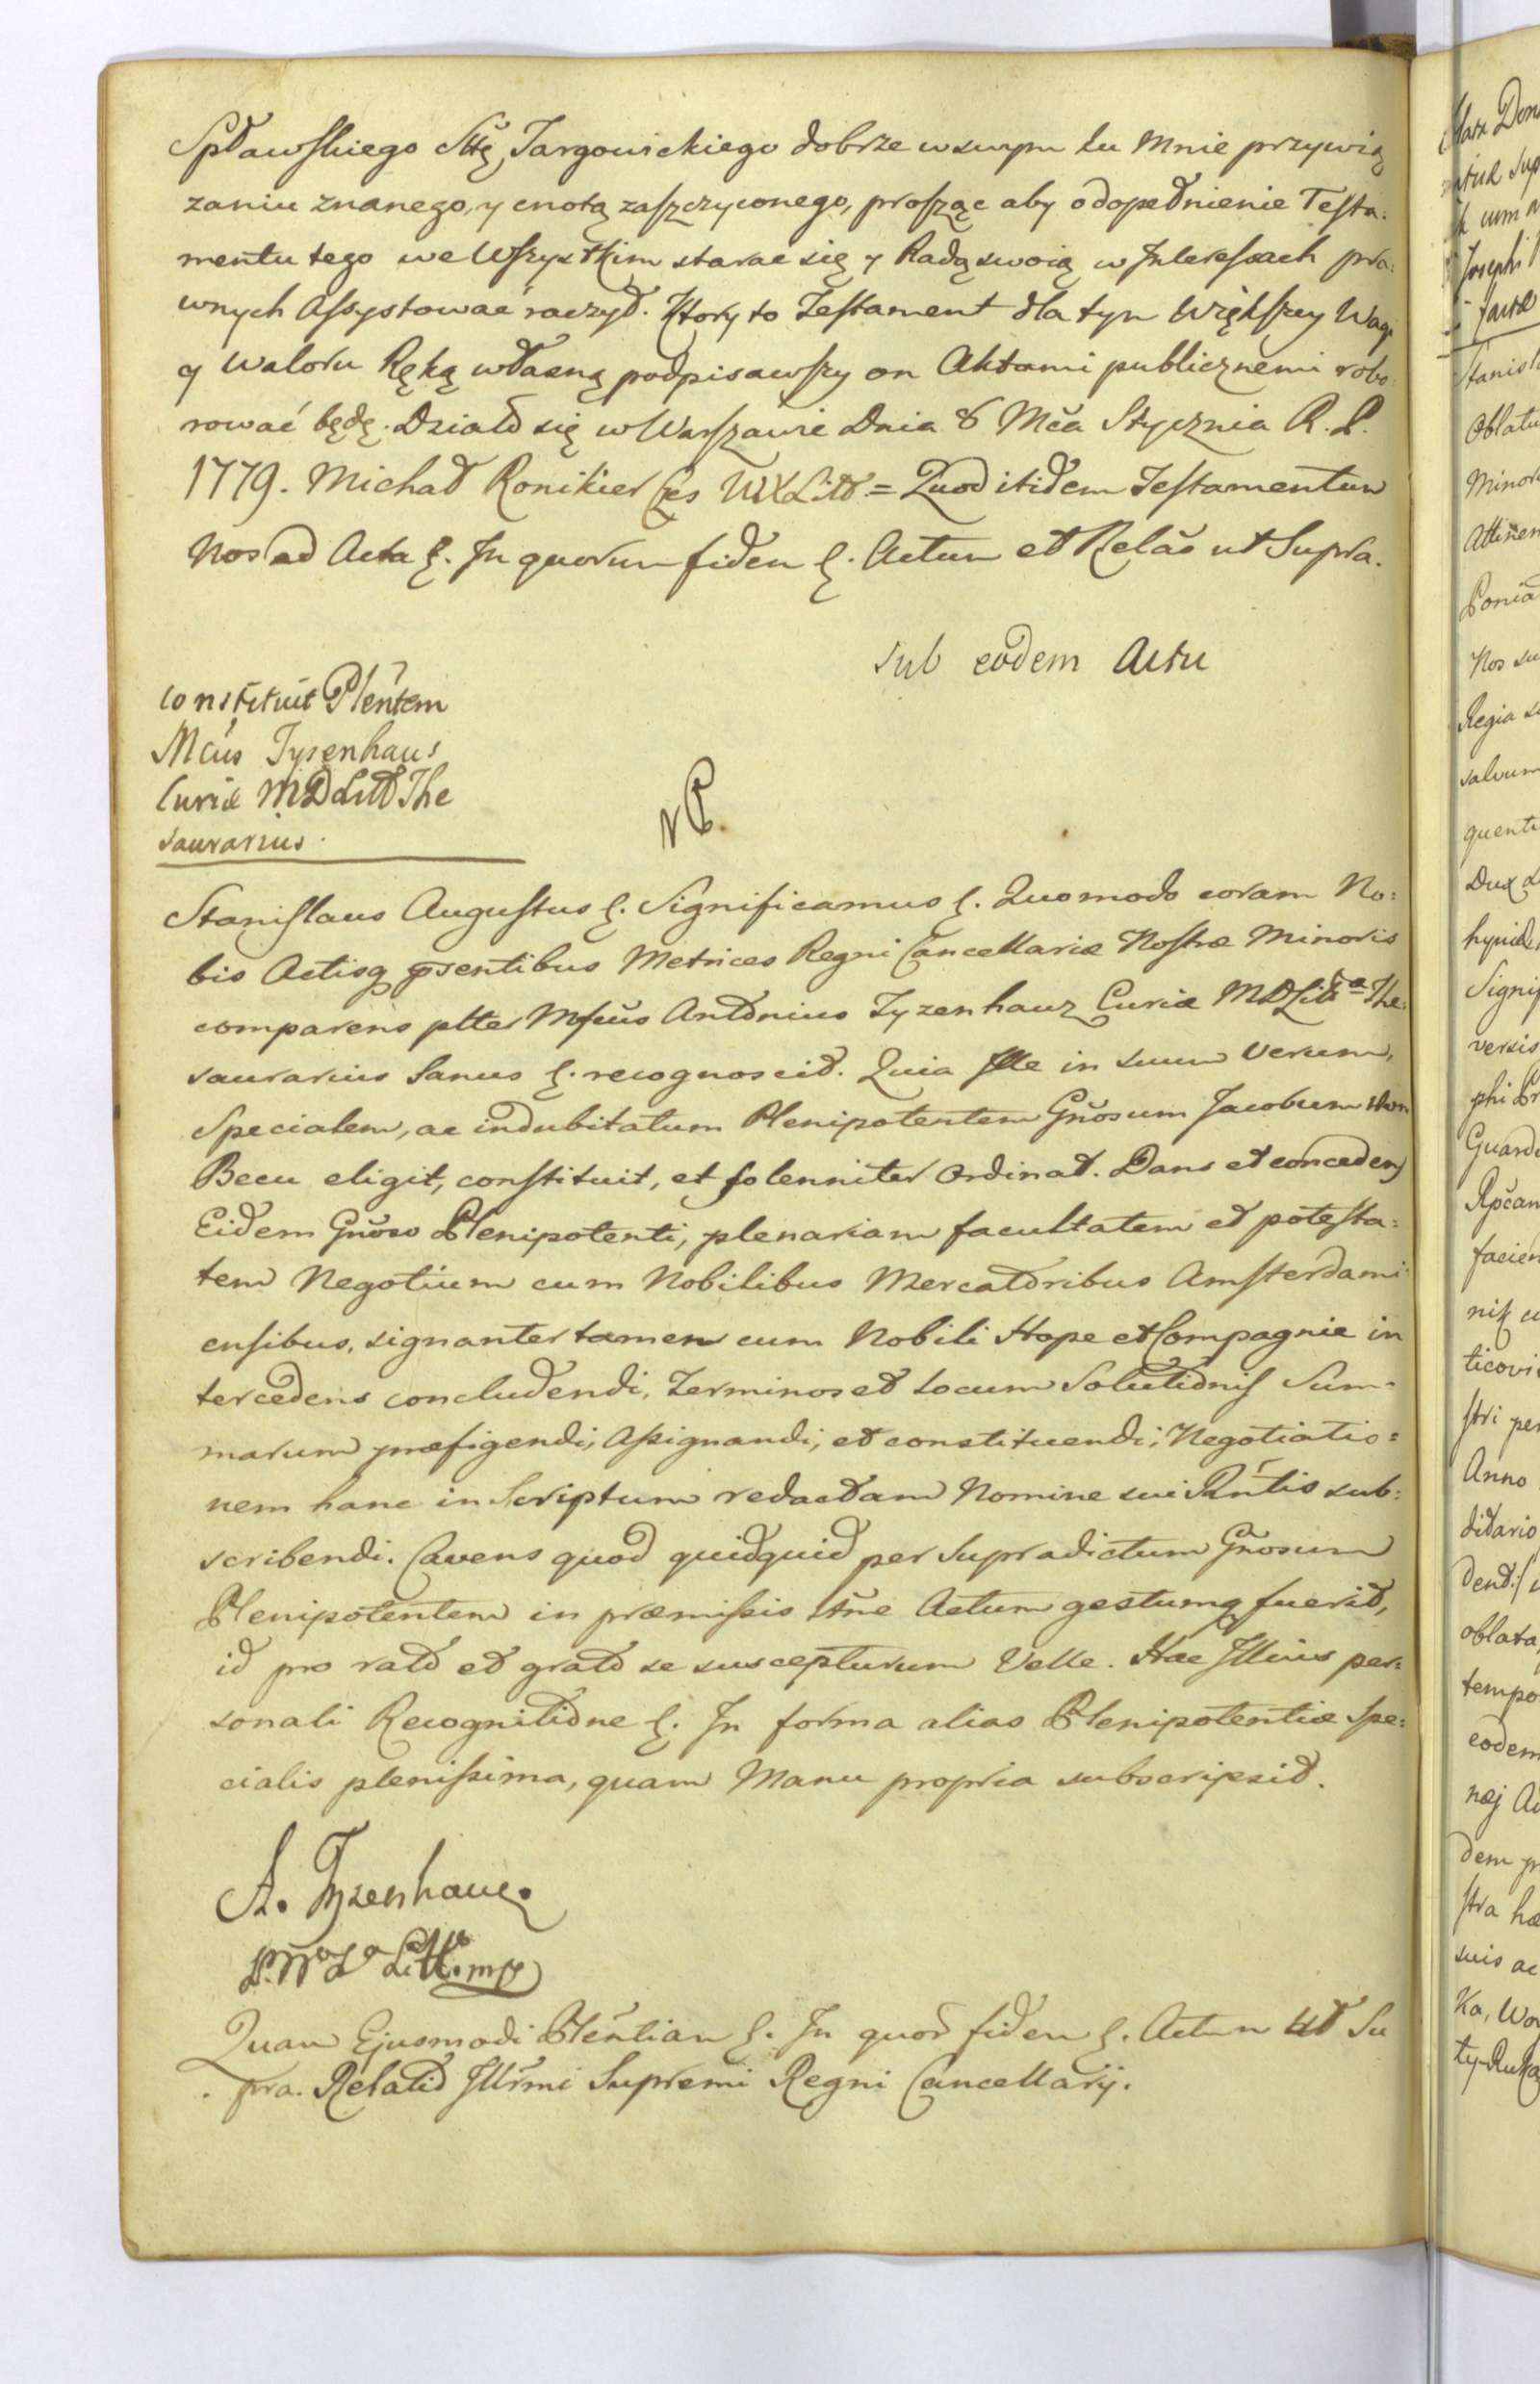 Spławskiego Sttę Targowickiego dobrze w swym ku Mnie przywią
zaniu znanego, y cnotą zaszczyconego, prosząc aby o dopełnienie Testa:
mentu tego we Wszystkim starac się y Radą swoią w Interessach pra:
wnych Assystować raczył. Ktory to Testament dla tym Większey Wagi
y Waloru Ręką własną podpisawszy on Aktami publicznemi robo:
rować będę. Działo się w Warszawie Dnia 8 Mca Stycznia R. P.
1779. Michał Ronikier Czes WXLitt = Quod itidem Testamentum
Nos ad Acta &. In quorum fidem &. Actum et Relão ut Supra.
Sub eodem Actu
Constituit Pleñtem
Mcus Tysenhaus
Curiæ MDLitt The
saurarius.
NP.
Stanislaus Augustus &. Significamus &. Quomodo coram No:
bis Actisq p̃sentibus Metrices Regni Cancellariæ Nostræ Minoris
comparens pltter Mfcus Antonius Tyzenhauz Curiæ MDLitt The:
saurarius Sanus &. recognoscit. Quia Ille in suum Verum,
Specialem, ac indubitatum Plenipotentem Gñosum Jacobum
Becu eligit, constituit, et solenniter Ordinat. Dans et concedens
Eidem Gñoso Plenipotenti, plenariam facultatem et potesta:
tem Negotium cum Nobilibus Mercatoribus Amsterdami
ensibus, signanter tamen cum Nobili Hope et Compagnie in
tercedens concludendi, Terminos et Locum Solutionis Sum:
marum præfigendi, Assignandi, et constituendi; Negotiatio:
nem hanc in Scriptum redactam Nomine sui Pñtis sub:
scribendi. Cavens quod quidquid per Supradictum Gñosum
Plenipotentem in præmissis Actum gestumq fuerit,
id pro rato et grato se suscepturum Velle. Hac Illius per:
sonali Recognitione &. In forma alias Plenipotentiæ Spe:
cialis plenissima, quam Manu propria subscripsit.
A. Tyzenhauz
Quam Ejusmodi Pleñtiam &. In quor fidem &. Actum Ut Su
pra. Relatio Illr̃mi Supremi Regni Cancellarij.